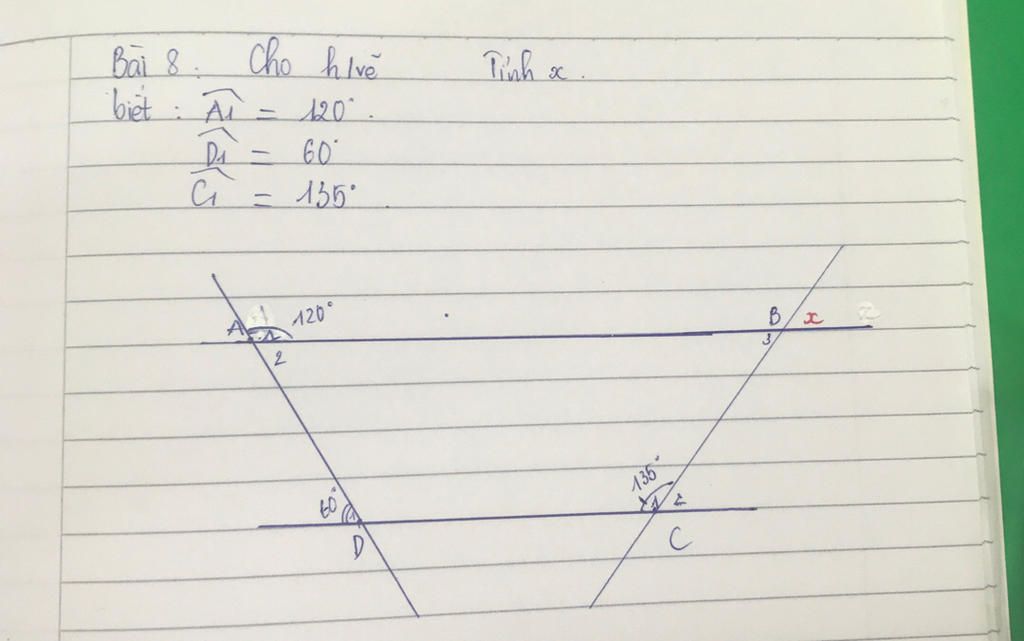 Bài 8 : Cho h/vẽ Tính x .
biết : A1 = 120° .
D1 = 60°
C1 = 135° .
A 1 120° B x
2 3
135°
60° 1 1 2
D C